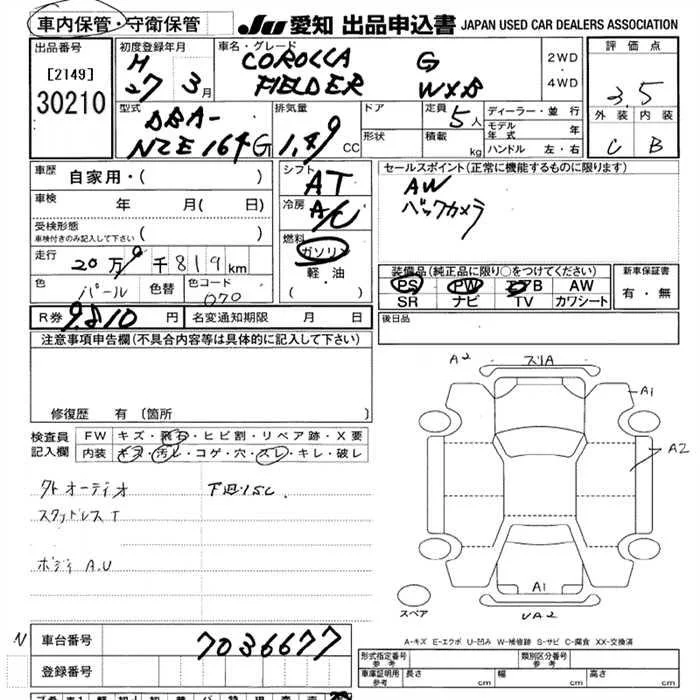 車内保管・守衛保管
JU 愛知 出品申込書 JAPAN USED CAR DEALERS ASSOCIATION
出品番号
[2149]
30210
初度登録年月
H
27 3月
車名・グレード
COROLLA G
FIELDER WXB
2WD
・
4WD
評価点
3.5
外装 内装
C B
型式
DBA-
NZE164G
排気量
1.49 CC
ドア
形状
定員 5人
積載 kg
ディーラー・並行
モデル年式 年
ハンドル 左・右
車歴
自家用・( )
車検 年 月( 日)
受検形態
車検付きのみ記入して下さい ( )
走行
20万0千819km
色 パール 色替 色コード 070
シフト
AT
冷房
A/C
燃料
ガソリン
軽油
( ・ )
セールスポイント(正常に機能するものに限ります)
AW
バックカメラ
装備品(純正品に限り○をつけてください)
PS PW エアB AW
SR ナビ TV カワシート
新車保証書
有・無
R券 9,810 円 名変通知期限 月 日
後日品
注意事項申告欄(不具合内容等は具体的に記入して下さい)
修復歴 有 〔箇所 〕
検査員
記入欄
FW キズ・飛石・ヒビ割・リペア跡・X要
内装 キズ・汚レ・コゲ・穴・スレ・キレ・破レ
外オーディオ 下廻りSC
スタッドレスT
ボディ A.U
A2 スリA
A1
A2
A1
UA2
スペア
A-キズ E-エクボ U-凹み W-補修跡 S-サビ C-腐食 XX-交換済
N 車台番号 7036677
登録番号
形式指定番号
参考
類別区分番号
参考
車庫証明用
参考
長さ cm 幅 cm 高さ cm